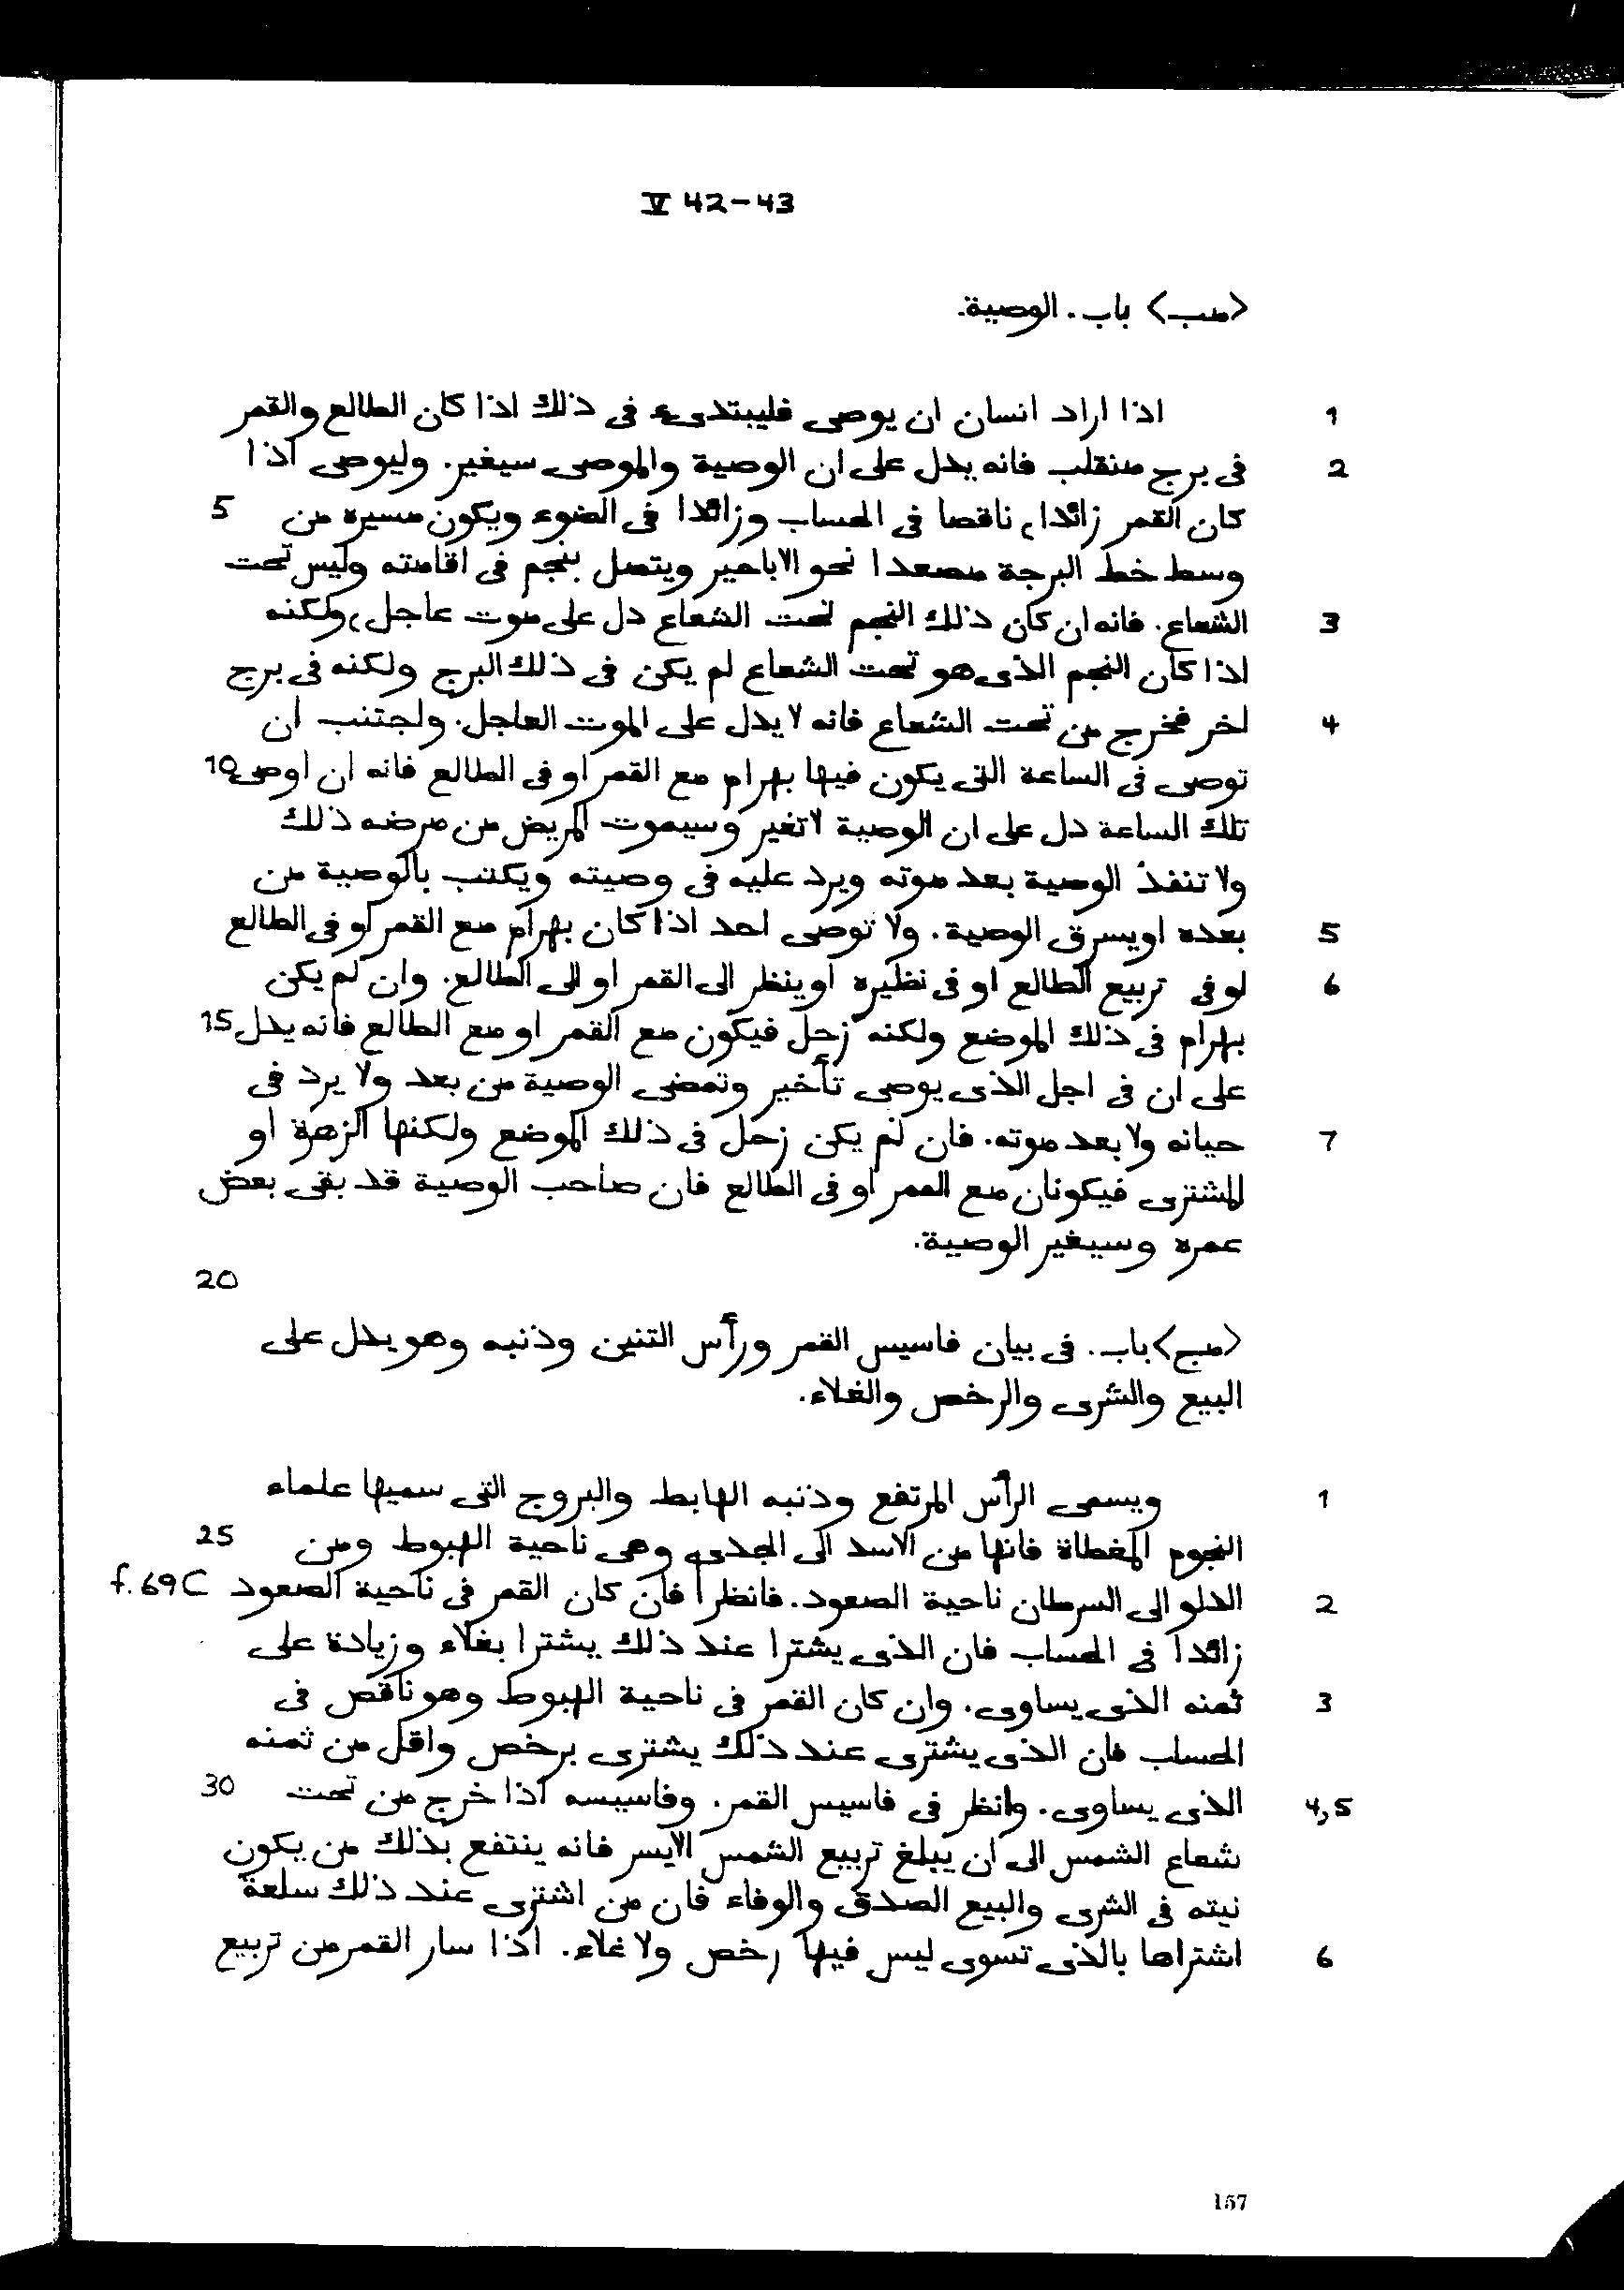 V 42-43
<مب> باب. الوصية.
1 اذا اراد انسان ان يوصى فليبتدىء فى ذلك اذا كان الطالع والقمر
2 فى برج منقلب فانه يدل على ان الوصية والموصى سيغير. وليوصى اذا
كان القمر زائدا، ناقصا فى الحساب وزائدا فى الضوء ويكون مسيره من 5
وسط خط البرجة مصعدا نحو الاباحير ويتصل بنجم فى اقامته وليس تحت
3 الشعاع. فانه ان كان ذلك النجم تحت الشعاع دل على موت عاجل، ولكنه
اذا كان النجم الذى هو تحت الشعاع لم يكن فى ذلك البرج ولكنه فى برج
4 اخر فخرج من تحت الشعاع فانه لا يدل على الموت العاجل. واجتنب ان
توصى فى الساعة التى يكون فيها بهرام مع القمر او فى الطالع فانه ان اوصى 10
تلك الساعة دل على ان الوصية لا تغير وسيموت المريض من مرضه ذلك
ولا تنفذ الوصية بعد موته ويرد عليه فى وصيته ويكتب بالوصية من
5 بعده او يسرق الوصية. ولا توصى احد اذا كان بهرام مع القمر او فى الطالع
6 او فى تربيع الطالع او فى نظيره او ينظر الى القمر او الى الطالع. وان لم يكن
بهرام فى ذلك الموضع ولكنه زحل فيكون مع القمر او مع الطالع فانه يدل 15
على ان فى اجل الذى يوصى تأخير وتمضى الوصية من بعد ولا يرد فى
7 حياته ولا بعد موته. فان لم يكن زحل فى ذلك الموضع ولكنها الزهرة او
المشترى فيكونان مع القمر او فى الطالع فان صاحب الوصية قد بقى بعض
عمره وسيغير الوصية.
20
<مج> باب. فى بيان فاسيس القمر ورأس التنين وذنبه وهو يدل على
البيع والشرى والرخص والغلاء.
1 ويسمى الرأس المرتفع وذنبه الهابط والبروج التى سميها علماء
النجوم المغطاة فانها من الاسد الى الجدى وهى ناحية الهبوط ومن 25
2 الدلو الى السرطان ناحية الصعود. فانظر ا فان كان القمر فى ناحية الصعود f. 69C
زائدا فى الحساب فان الذى يشترا عند ذلك يشترا بغلاء وزيادة على
3 ثمنه الذى يساوى. وان كان القمر فى ناحية الهبوط وهو ناقص فى
الحساب فان الذى يشترى عند ذلك يشترى برخص واقل من ثمنه
4,5 الذى يساوى. وانظر فى فاسيس القمر. وفاسيسه اذا خرج من تحت 30
شعاع الشمس الى ان يبلغ تربيع الشمس الايسر فانه ينتفع بذلك من يكون
نيته فى الشرى والبيع الصدق والوفاء فان من اشترى عند ذلك سلعة
6 اشتراها بالذى تسوى ليس فيها رخص ولا غلاء. اذا سار القمر من تربيع
157